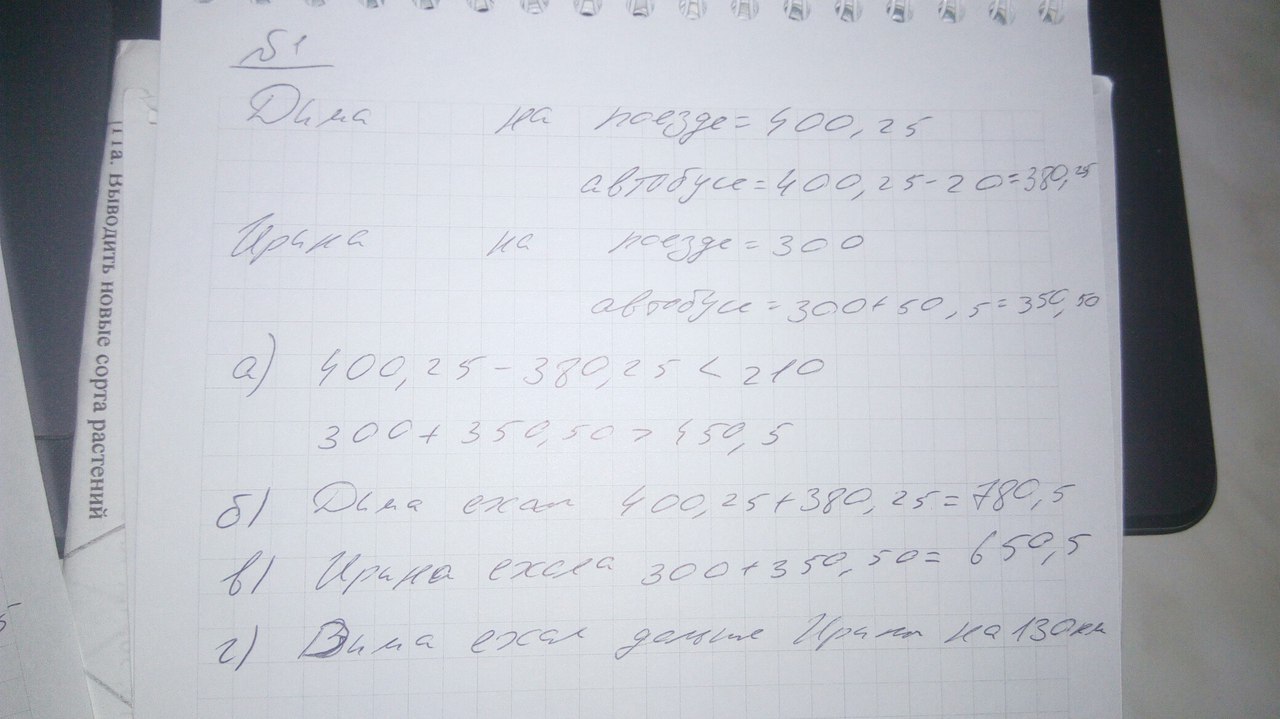 №1
Дима на поезде = 400,25
автобусе = 400,25 - 20 = 380,25
Ирина на поезде = 300
автобусе = 300 + 50,5 = 350,50
а) 400,25 - 380,25 < 210
300 + 350,50 > 450,5
б) Дима ехал 400,25 + 380,25 = 780,5
в) Ирина ехала 300 + 350,50 = 650,5
г) Дима ехал дальше Ирины на 130 км
Выводить новые сорта растений
5